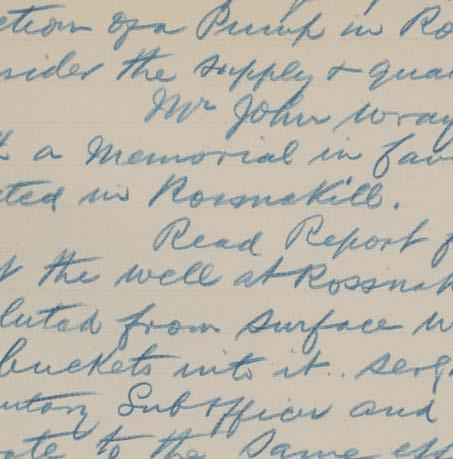 ction of a Pump in Ro
sider the supply & qua
Mr John Wray
a Memorial in fav
cted in Rossnakill.
Read Report f
t the well at Rossnak
luted from surface w
buckets into it. Serg
utary Subofficer and
ate to the same eff